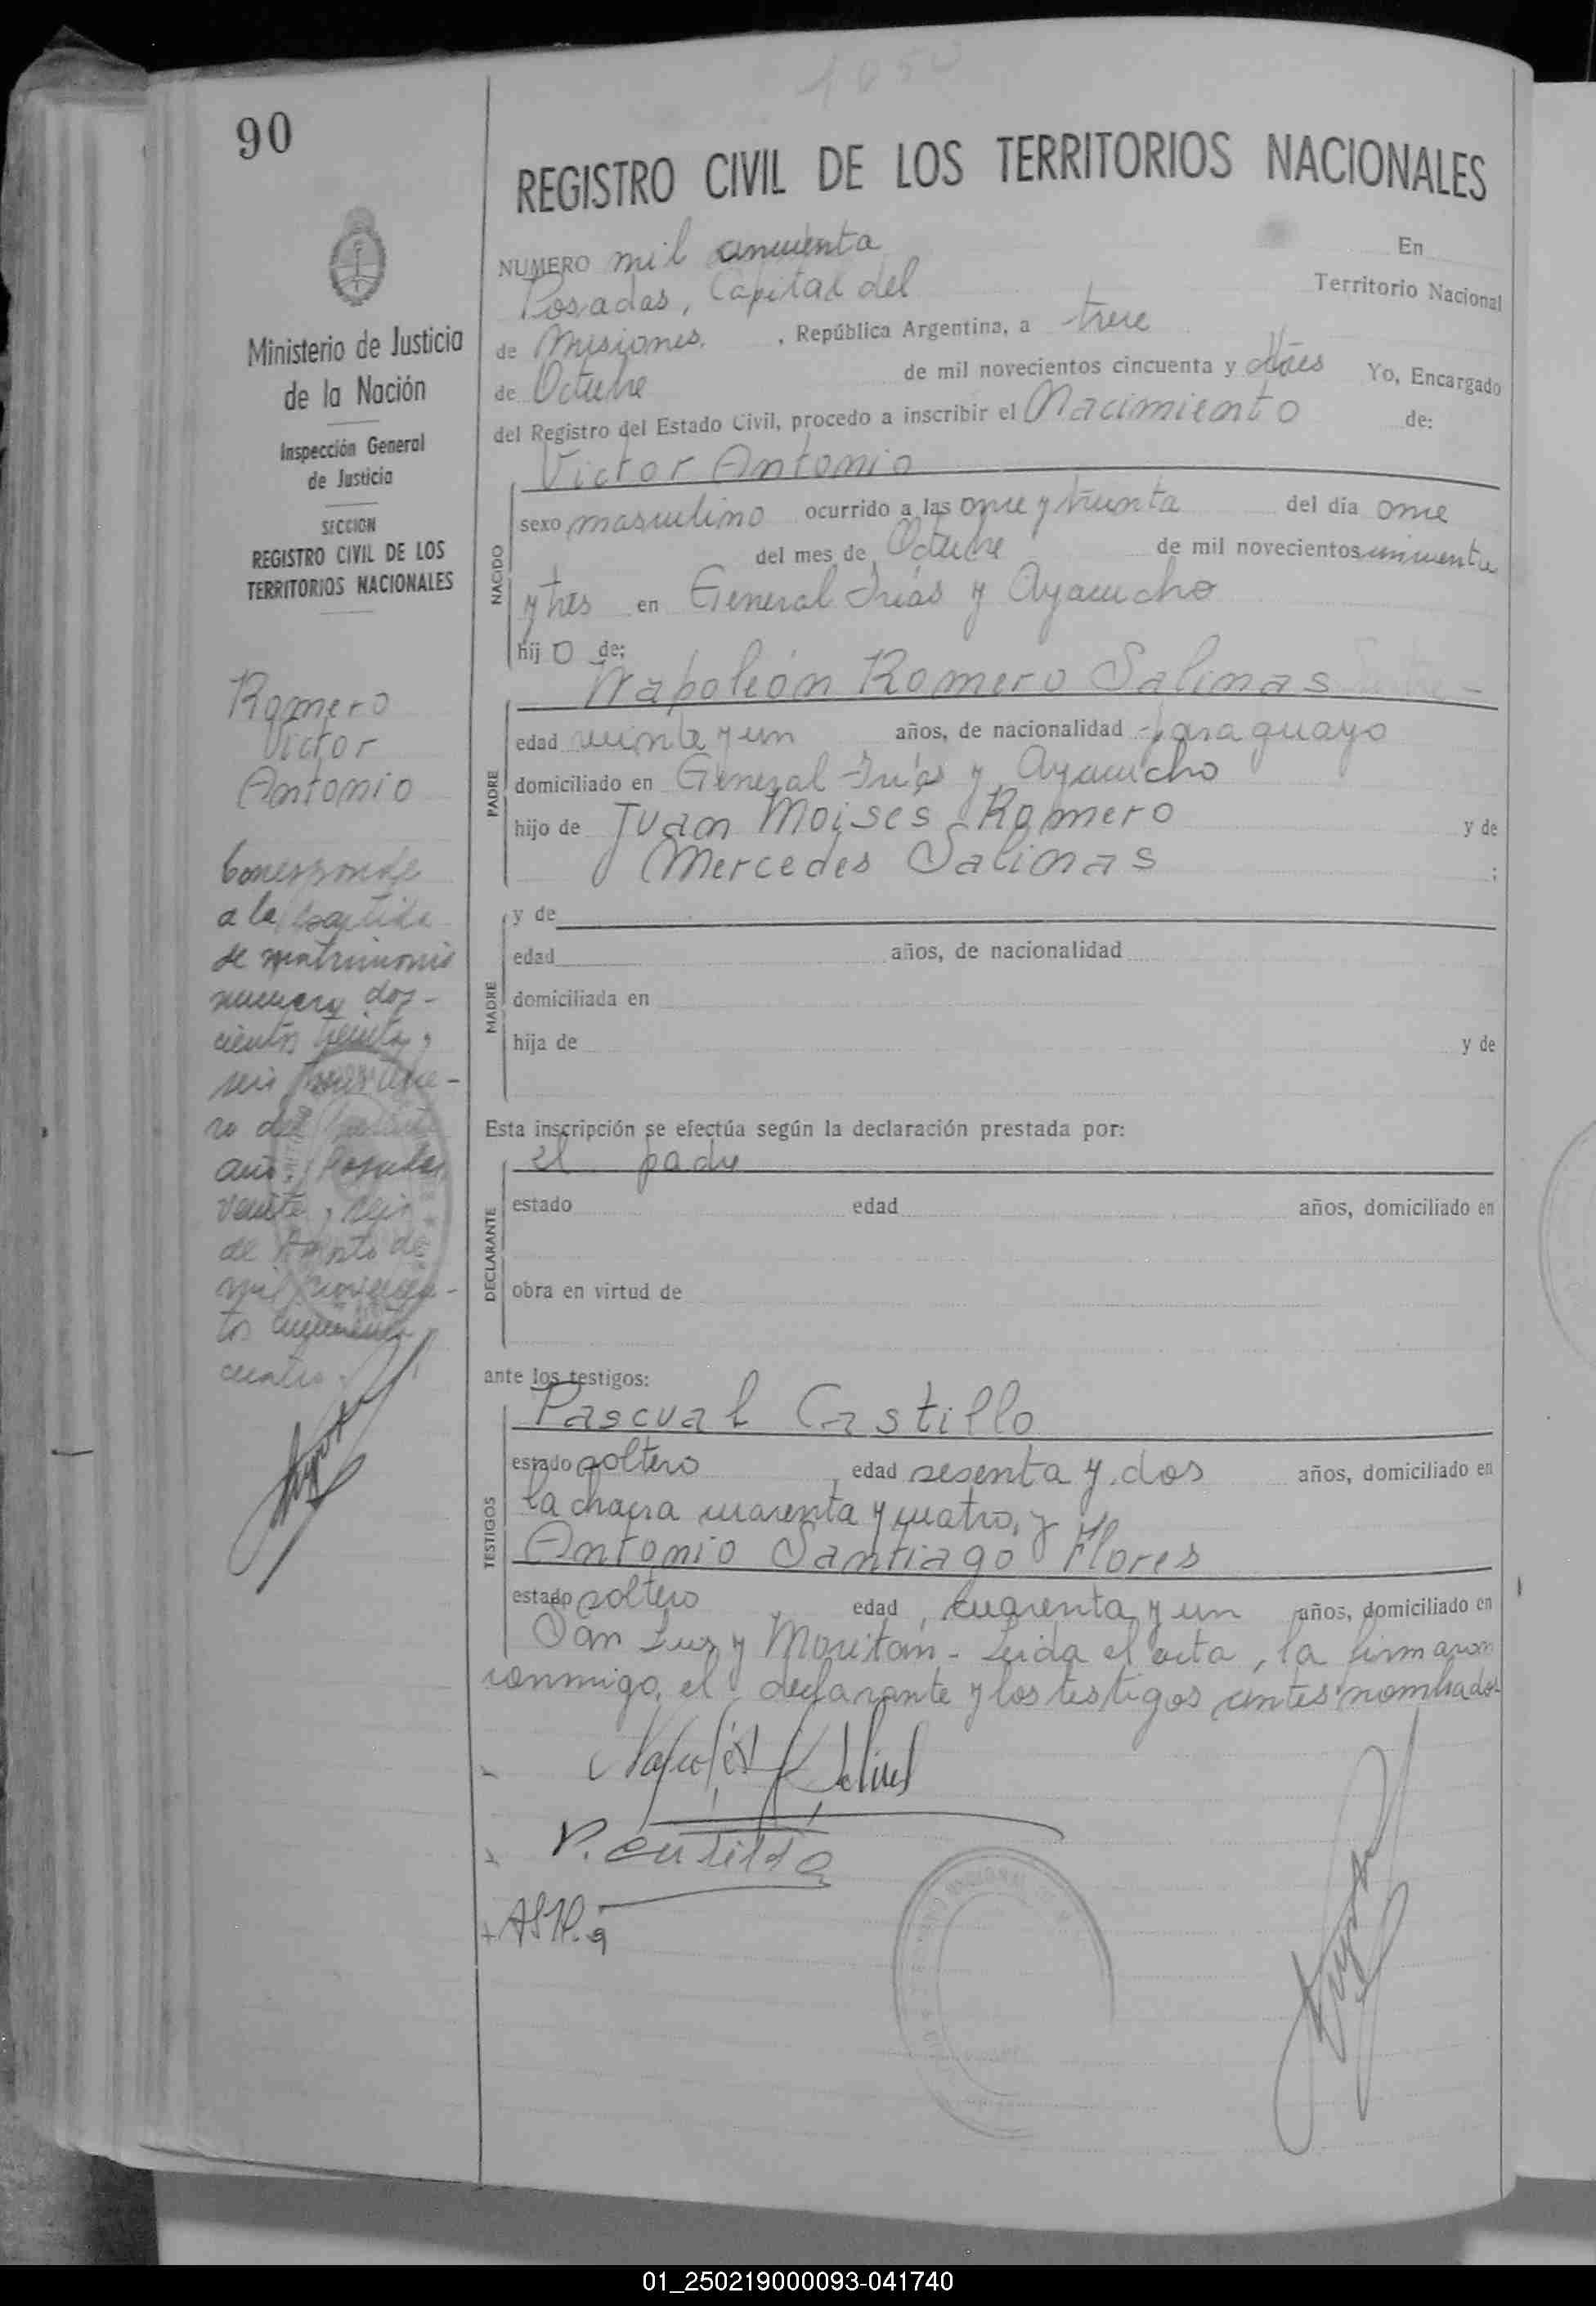 1050
90
REGISTRO CIVIL DE LOS TERRITORIOS NACIONALES
NUMERO mil cincuenta En
Posadas, Capital del Territorio Nacional
de Misiones. , República Argentina, a trece
de Octubre de mil novecientos cincuenta y tres Yo, Encargado
del Registro del Estado Civil, procedo a inscribir el Nacimiento de:
Victor Antonio
NACIDO
sexo masculino ocurrido a las once y treinta del día once
del mes de Octubre de mil novecientos cincuenta
y tres en General Frías y Ayacucho
hijo de:
Napoleón Romero Salinas
PADRE
edad veinte y un años, de nacionalidad paraguayo
domiciliado en General Frías y Ayacucho
hijo de Juan Moises Romero y de
Mercedes Salinas ;
MADRE
y de
edad años, de nacionalidad
domiciliada en
hija de y de
Esta inscripción se efectúa según la declaración prestada por:
el padre
DECLARANTE
estado edad años, domiciliado en
obra en virtud de
ante los testigos:
Pascual Castillo
TESTIGOS
estado soltero edad sesenta y dos años, domiciliado en
la chacra cuarenta y cuatro, y
Antonio Santiago Flores
estado soltero edad, cuarenta y un años, domiciliado en
San Luis y Moritan - Leida el acta, la firmaron
conmigo, el declarante y los testigos antes nombrados
P. Castillo
Ministerio de Justicia
de la Nación
Inspección General
de Justicia
SECCION
REGISTRO CIVIL DE LOS
TERRITORIOS NACIONALES
Romero
Victor
Antonio
Corresponde
a la partida
de matrimonio
numero dos-
cientos treinta y
seis
ro del
año. Posadas
veinte y seis
de Agosto de
mil novecien-
tos cincuenta y
cuatro.
01_250219000093-041740